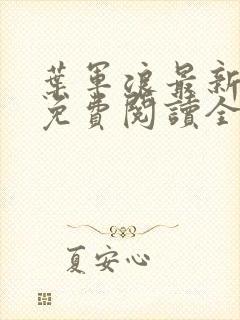 葉軍浪最新
免費閱讀全
夏安心